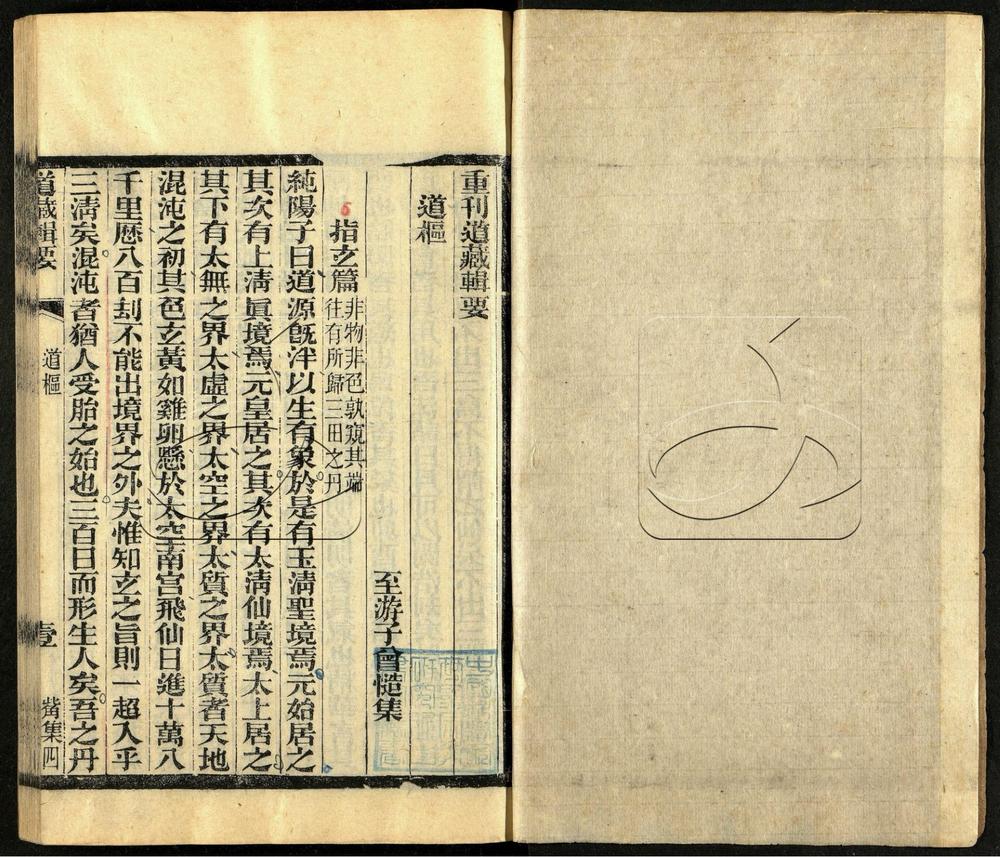 重刊道藏輯要
道樞
至游子曾慥集
指玄篇
非物非色孰窺其端
往有所歸三田之丹
純陽子曰道源旣泮以生有象於是有玉淸聖境焉元始居之
其次有上淸眞境焉元皇居之其次有太淸仙境焉太上居之
其下有太無之界太虛之界太空之界太質之界太質者天地
混沌之初其色玄黃如雞卵懸於太空南宮飛仙日進十萬八
千里歷八百刦不能出境界之外夫惟知玄之旨則一超入乎
三淸矣混沌者猶人受胎之始也三百日而形生人矣吾之丹
道藏輯要
道樞
壹
觜集四